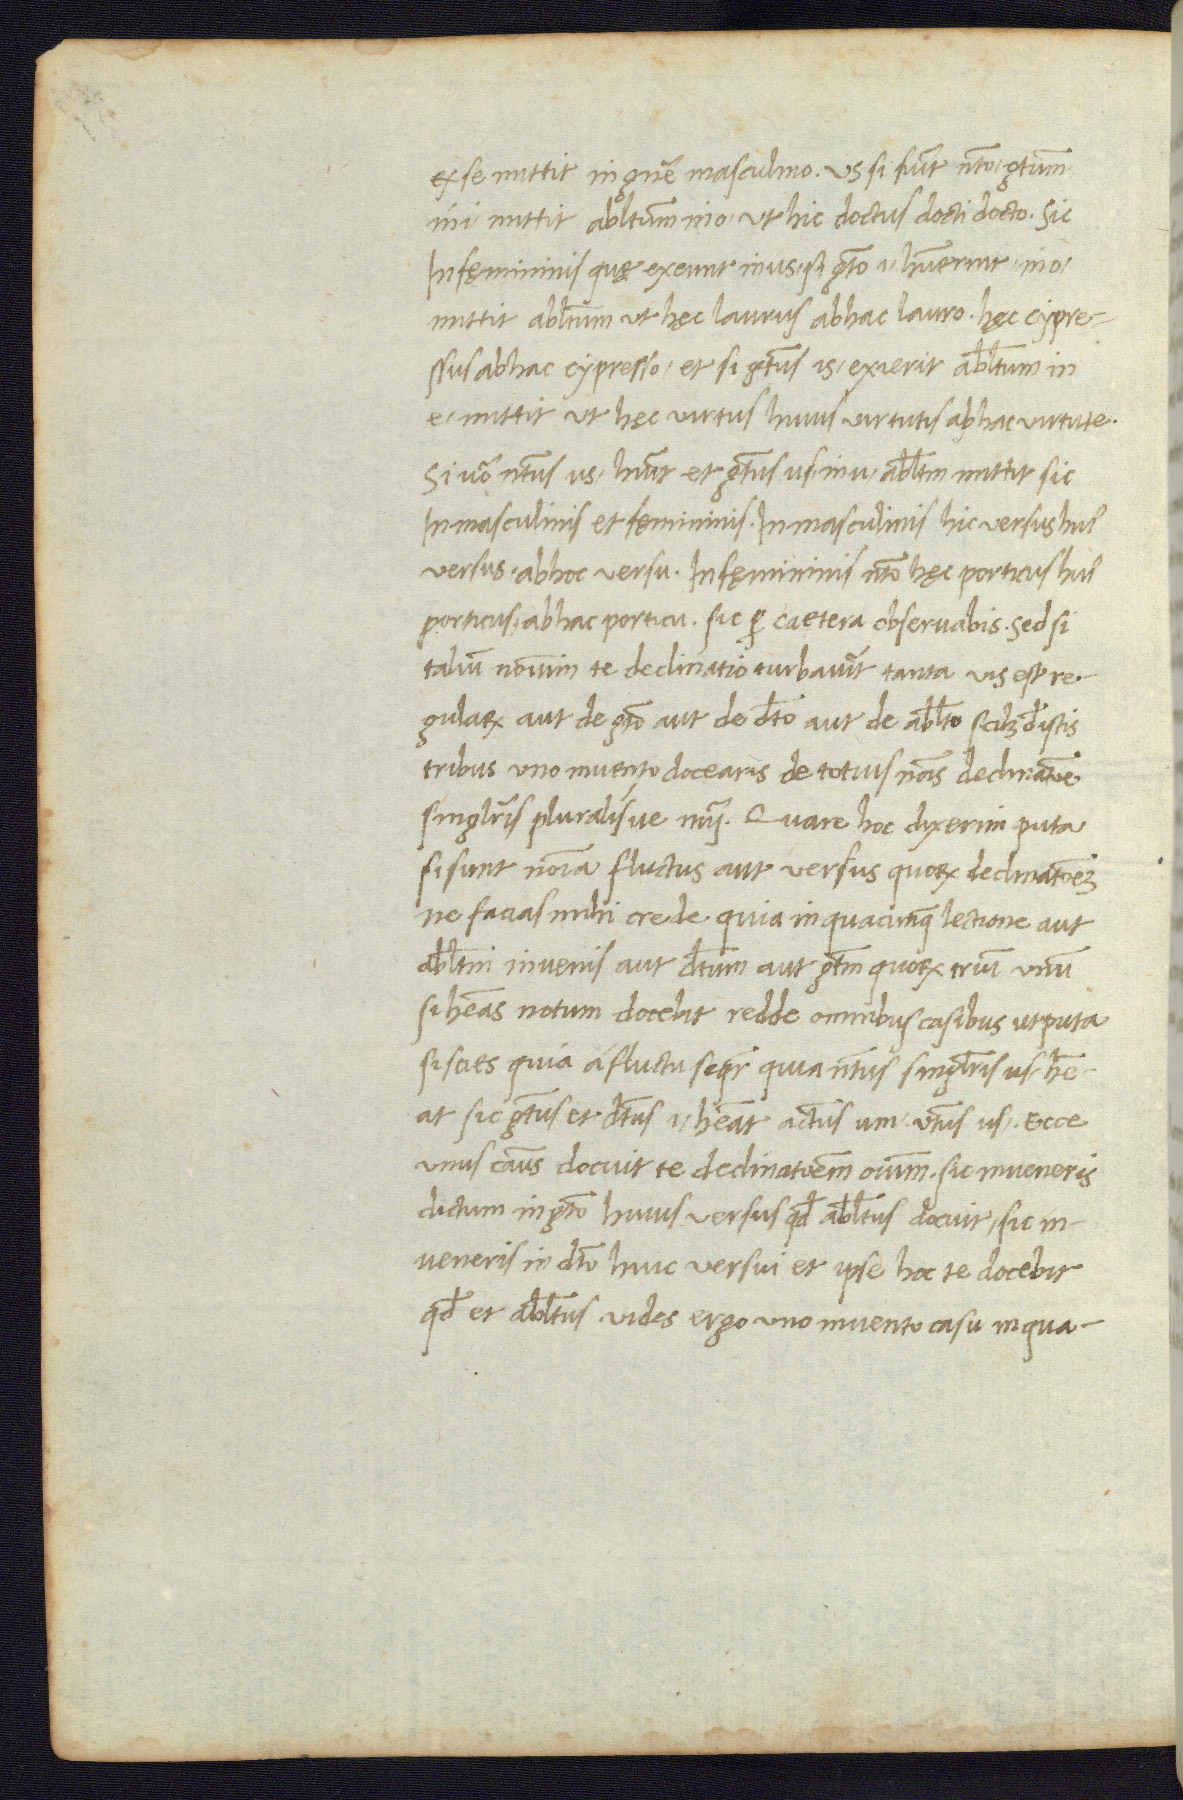 ex se mittit in gn̄e masculino. us si fuer̄t nt̄o, gt̄um
in i, mittit abltūm in o, ut hic doctus docti docto. Sic
In fęmininis quę exeunt in us, si gt̄o i, hūerint, in o,
mittit abltūm ut hęc laurus ab hac lauro. hęc cypre-
ssus ab hac cypresso, et si gt̄us is, exierit abltūm in
e, mittit ut hęc virtus huius virtutis ab hac virtute.
Si uō nt̄us us, hūnt et gt̄us us, in u, abltm̄ mittit sic
In masculinis et femininis. In masculinis hic versus hui9
versus, ab hoc versu. In fęmininis nt̄o hęc porticus hui9
porticus, ab hac porticu. sic ꝑ caetera observabis. sed si
taliū noīum te declinatio turbauīt tanta vis est re-
gularꝝ aut de gt̄o aut de dt̄o aut de ablt̄o scilꝫ de istis
tribus uno invento docearis de totius nōis declinatōe
singlr̄is pluralisue nrī. Quare hoc dixerim puta
si sunt noīa fluctus aut versus quorꝝ declinatōeꝫ
ne facias mihi crede quia in quacunqꝫ lectione aut
abltm̄ invenis aut dt̄um aut gt̄m quorꝝ triū unū
si hēas notum docebit redde omnibus casibus ut puta
si scies quia á fluctu seqr̄ quia nt̄us singlr̄is us, hē-
at sic gt̄us et dt̄us i, hēat act̄us um, vt̄us us,. Ecce
unus cāus docuit te declinatōem oīum. sic inveneris
dictum in gt̄o huius versus qđ ablt̄us docuit, sic in-
veneris in dt̄o huic versui et ipse hoc te docebit
qđ et ablt̄us vides ergo uno invento casu in qua-